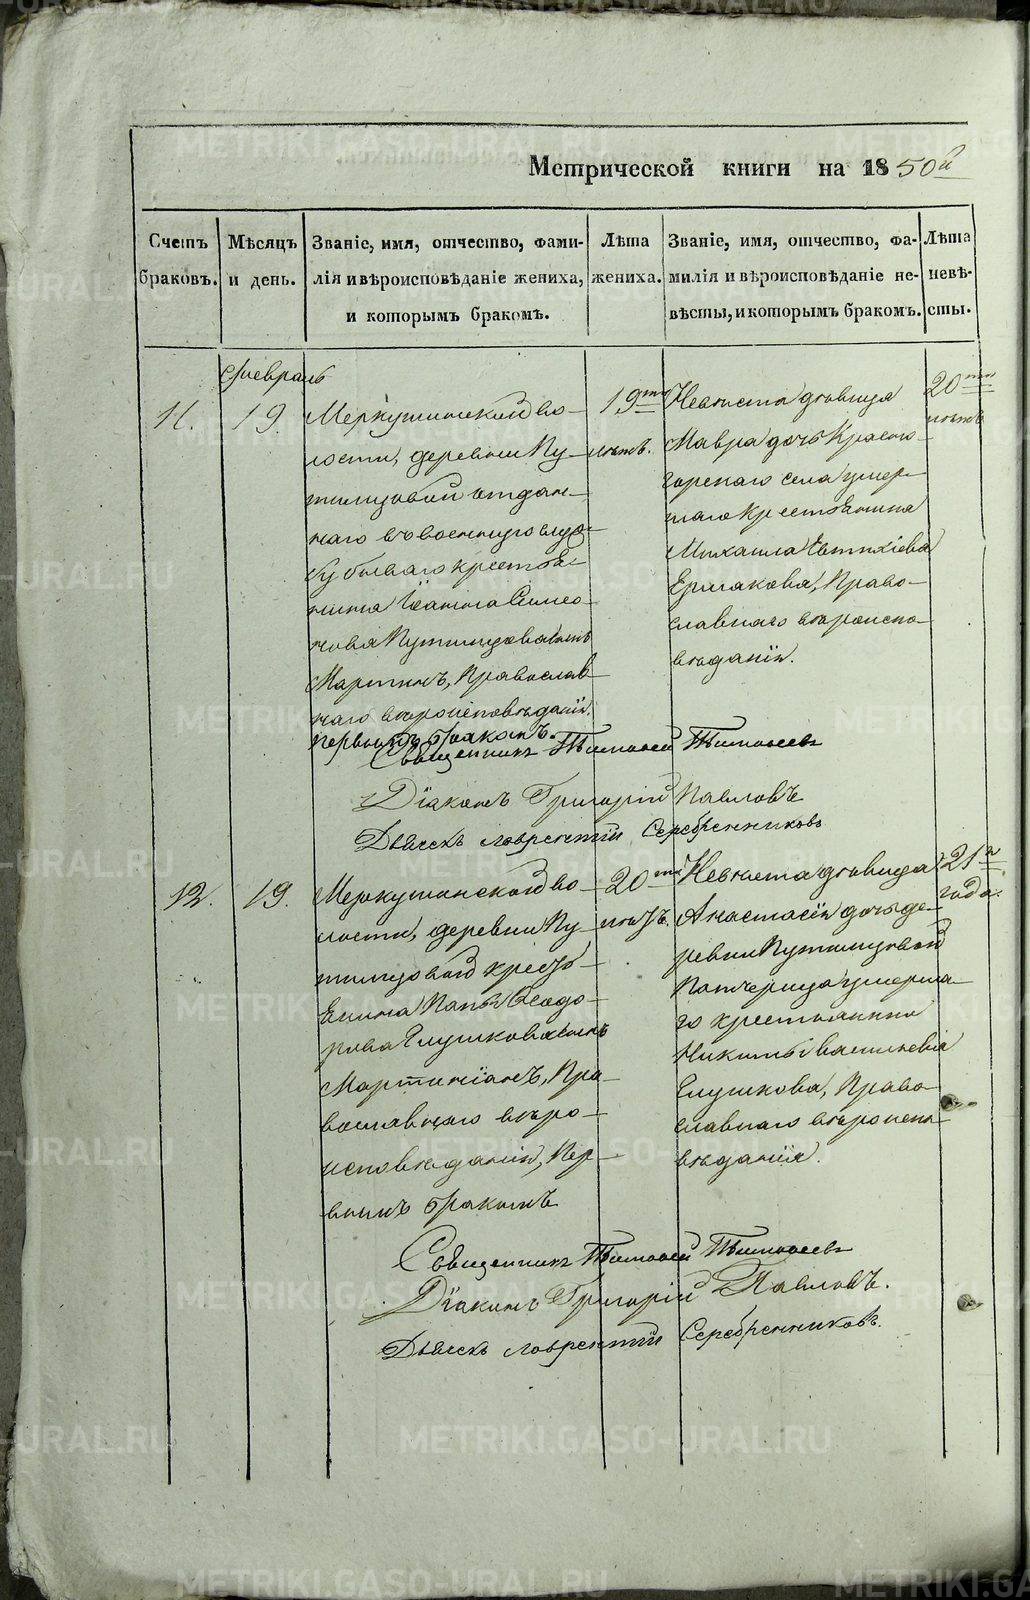 Метрической книги на 1850й
Счетъ браковъ.
Мѣсяцъ и день.
Званіе, имя, отчество, фами-
лія и вѣроисповѣданіе жениха,
и которымъ бракомъ.
Лѣта
жениха.
Званіе, имя, отчество, фа-
милія и вѣроисповѣданіе не-
вѣсты, и которымъ бракомъ.
Лѣта
невѣ-
сты.
Февраль
11.
19.
Меркушинской во-
лости, деревни Пу-
тилцовой отдан-
наго въ военную служ-
бу бываго крестья-
нина Іоанна Симео-
нова Путилцова сынъ
Мартинъ, Православ-
наго вѣроисповѣданія.
первымъ бракомъ.
19ти
лѣтъ.
Невѣста дѣвица
Мавра дочь Красно-
горскаго села умер-
шаго крестьянина
Михаила Евтихіева
Ермакова, Право-
славнаго вѣроиспо-
вѣданія.
20ти
лѣтъ
Священникъ Тимофей Тимофеевъ
Діаконъ Григорій Павловъ
Дьячекъ Лаврентій Серебренниковъ
12.
19.
Меркушинской во-
лости, деревни Пу-
тилцовой кресть-
янина Феодо-
рова Глушкова сынъ
Мартиніанъ, Пра-
вославнаго вѣро-
исповѣданія, Пер-
вымъ бракомъ
20ти
лѣтъ.
Невѣста дѣвица
Анастасія дочь де-
ревни Путилцовой
Патчерица умерша-
го крестьянина
Никиты Васильева
Глушкова, Право-
славнаго вѣроиспо-
вѣданія.
21н
года.
Священникъ Тимофей Тимофеевъ
Діаконъ Григорій Павловъ.
Дьячекъ Лаврентій Серебренниковъ.
METRIKI.GASO-URAL.RU